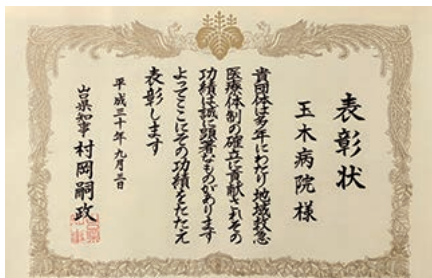 表彰状
玉木病院様
貴団体は多年にわたり地域救急
医療体制の確立に貢献されその
功績は誠に顕著なものがあります
よってここにその功績をたたえ
表彰します
平成三十年九月三日
山口県知事 村岡嗣政